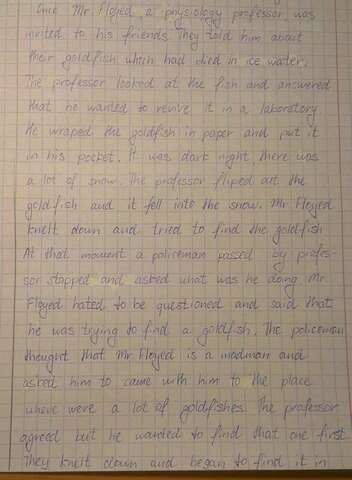 Once Mr. Floyed a physiology professor was
invited to his friends. They told him about
their goldfish which had died in ice water.
The professor looked at the fish and answered
that he wanted to revive it in a laboratory
He wraped the goldfish in paper and put it
in his pocket. It was dark night, there was
a lot of snow. The professor fliped out the
goldfish and it fell into the snow. Mr Floyed
knelt down and tried to find the goldfish
At that moment a policeman passed by profes-
sor stopped and asked what was he doing Mr.
Floyed hated to be questioned and said that
he was trying to find a goldfish. The policeman
thought that Mr Floyed is a madman and
asked him to came with him to the place
where were a lot of goldfishes. The professor
agreed but he wanted to find that one first
They knelt down and began to find it in